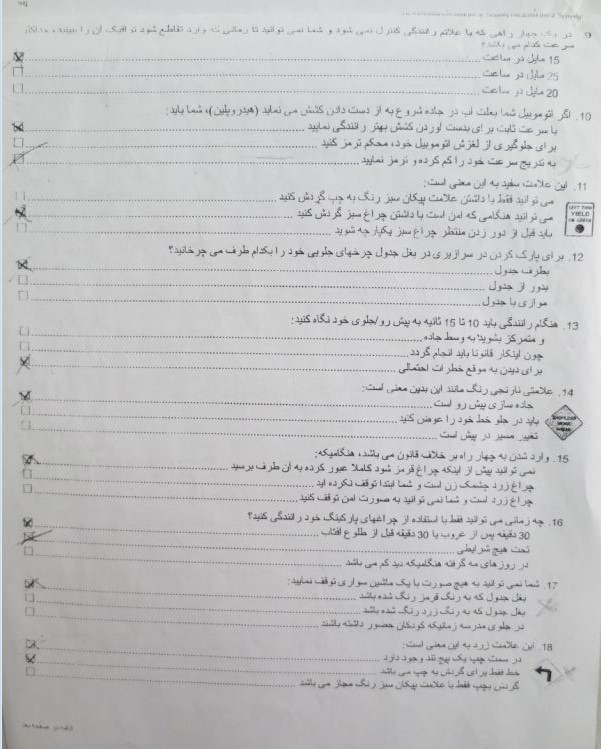 9 در یک چهار راهی که با علائم رانندگی کنترل نمی شود و شما نمی توانید تا زمانی که وارد تقاطع شود ترافیک آن را ببینید، حداکثر
سرعت کدام می باشد؟
15 مایل در ساعت
25 مایل در ساعت
20 مایل در ساعت
10. اگر اتوموبیل شما بعلت آب در جاده شروع به از دست دادن کشش می نماید (هیدروپلین)، شما باید:
با سرعت ثابت برای بدست آوردن کشش بهتر رانندگی نمایید
برای جلوگیری از لغزش اتوموبیل خود، محکم ترمز کنید
به تدریج سرعت خود را کم کرده و ترمز نمایید
11. این علامت سفید به این معنی است:
می توانید فقط با داشتن علامت پیکان سبز رنگ به چپ گردش کنید
می توانید هنگامی که امن است با داشتن چراغ سبز گردش کنید
باید قبل از دور زدن منتظر چراغ سبز یکپارچه شوید
LEFT TURN
YIELD
ON GREEN
12. برای پارک کردن در سرازیری در بغل جدول چرخهای جلویی خود را بکدام طرف می چرخانید؟
بطرف جدول
بدور از جدول
موازی با جدول
13. هنگام رانندگی باید 10 تا 15 ثانیه به پیش رو/جلوی خود نگاه کنید:
و متمرکز بشوید به وسط جاده
چون اینکار قانونا باید انجام گردد
برای دیدن به موقع خطرات احتمالی
14. علامتی نارنجی رنگ مانند این بدین معنی است:
جاده سازی پیش رو است
باید در جلو خط خود را عوض کنید
تغییر مسیر در پیش است
15. وارد شدن به چهار راه بر خلاف قانون می باشد، هنگامیکه:
نمی توانید پیش از اینکه چراغ قرمز شود کاملا عبور کرده به آن طرف برسید
چراغ زرد چشمک زن است و شما ابتدا توقف نکرده اید
چراغ زرد است و شما نمی توانید به صورت امن توقف کنید
16. چه زمانی می توانید فقط با استفاده از چراغهای پارکینگ خود رانندگی کنید؟
30 دقیقه پس از غروب یا 30 دقیقه قبل از طلوع آفتاب
تحت هیچ شرایطی
در روزهای مه گرفته هنگامیکه دید کم می باشد
17. شما نمی توانید به هیچ صورت با یک ماشین سواری توقف نمایید:
بغل جدول که به رنگ قرمز رنگ شده باشد
بغل جدول که به رنگ زرد رنگ شده باشد
در جلوی مدرسه زمانیکه کودکان حضور داشته باشند
18. این علامت زرد به این معنی است:
در سمت چپ یک پیچ تند وجود دارد
خط فقط برای گردش به چپ می باشد
گردش بچپ فقط با علامت پیکان سبز رنگ مجاز می باشد